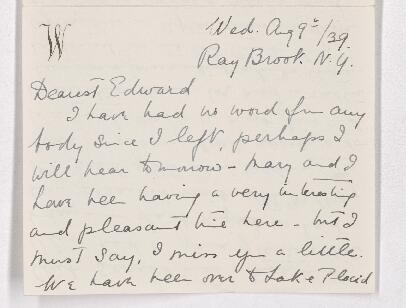 W
Wed. Aug 9th/39
Ray Brook. N.Y.
Dearest Edward
I have had no word from any
body since I left, perhaps I
will hear tomorrow - Mary and I
have been having a very interesting
and pleasant time here - but I
must say, I miss you a little.
We have been over to Lake Placid